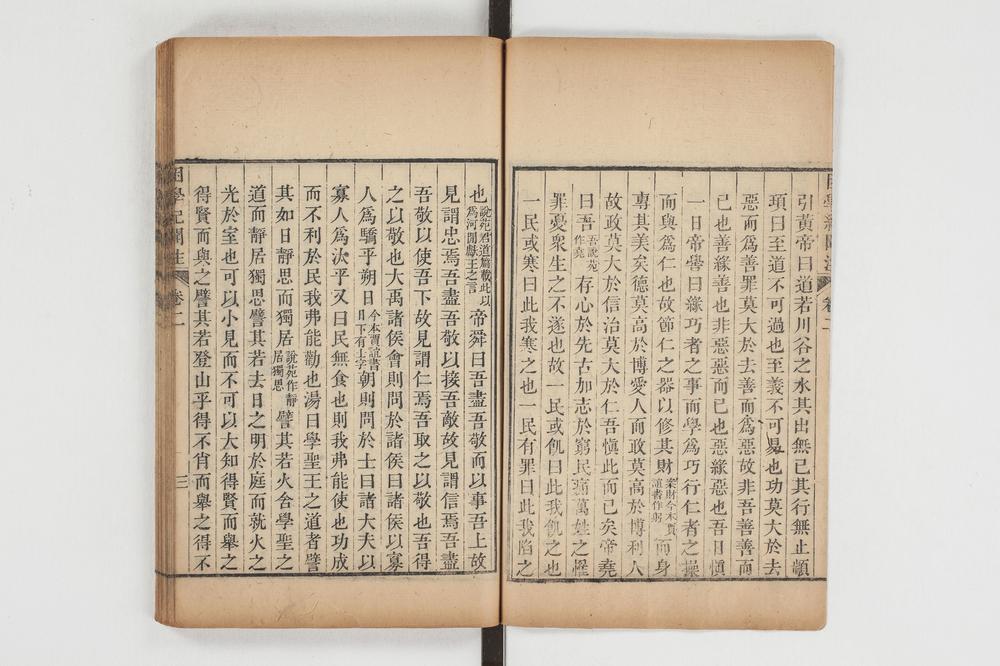 引黃帝曰道若川谷之水其出無已其行無止顓
頊曰至道不可過也至義不可易也功莫大於去
惡而爲善罪莫大於去善而爲惡故非吾善善而
已也善緣善也非惡惡而已也惡緣惡也吾日愼
一日帝嚳曰緣巧者之事而學爲巧行仁者之操
而與爲仁也故節仁之器以修其財案財今本賈誼書作躬而身
專其美矣德莫高於博愛人而政莫高於博利人
故政莫大於信治莫大於仁吾愼此而已矣帝堯
曰吾吾說苑作堯存心於先古加志於窮民痛萬姓之罹
罪憂衆生之不遂也故一民或飢曰此我飢之也
一民或寒曰此我寒之也一民有罪曰此我陷之
也說苑君道篇載此以爲河閒獻王之言帝舜曰吾盡吾敬而以事吾上故
見謂忠焉吾盡吾敬以接吾敵故見謂信焉吾盡
吾敬以使吾下故見謂仁焉吾取之以敬也吾得
之以敬也大禹諸侯會則問於諸侯曰諸侯以寡
人爲驕乎朔日今本賈誼書日下有士字朝則問於士曰諸大夫以
寡人爲汰乎又曰民無食也則我弗能使也功成
而不利於民我弗能勸也湯曰學聖王之道者譬
其如日靜思而獨居說苑作靜居獨思譬其若火舍學聖之
道而靜居獨思譬其若去日之明於庭而就火之
光於室也可以小見而不可以大知得賢而舉之
得賢而與之譬其若登山乎得不肖而舉之得不
困學紀聞注
卷二
三